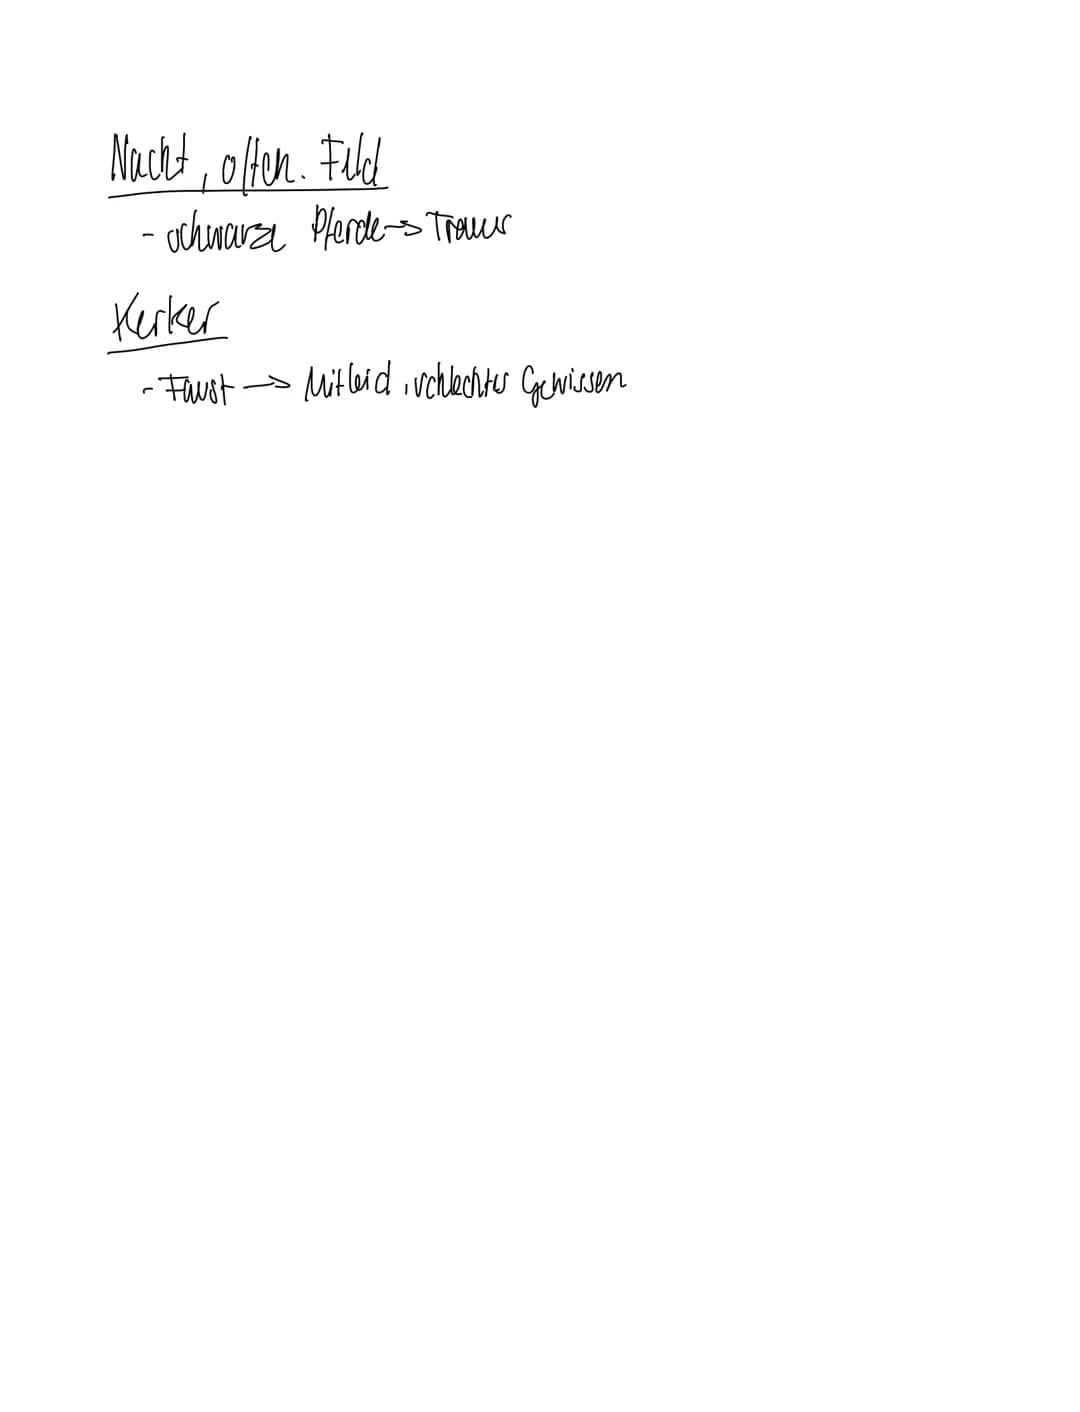 Nacht, offen. Feld
- schwarze Pferde → Trauer
Kerker
- Faust → Mitleid, schlechtes Gewissen